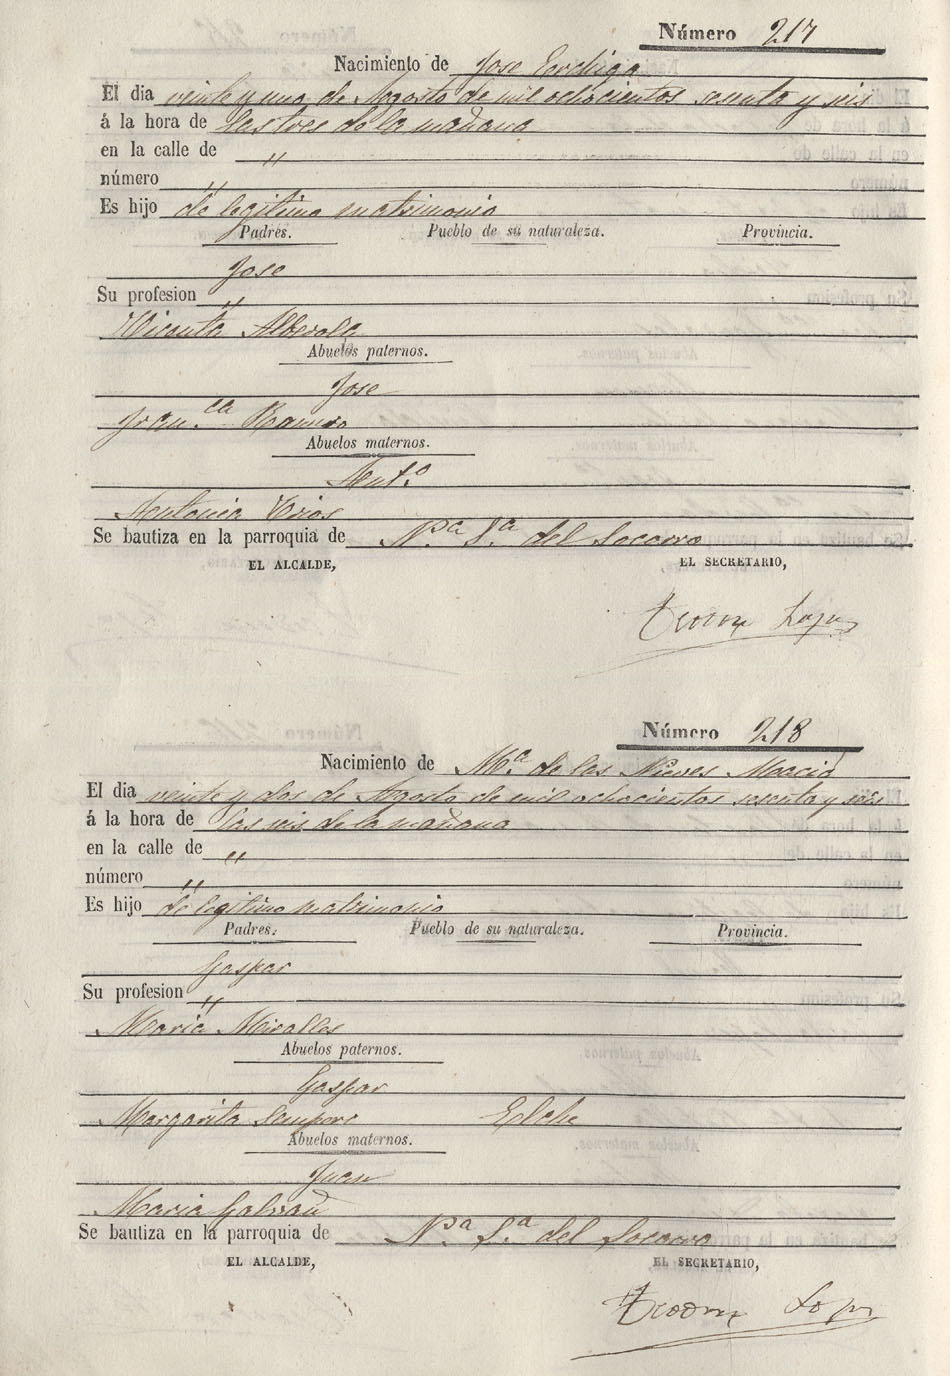 Número 217
Nacimiento de Jose
El dia veinte y uno de Agosto de mil ochocientos sesenta y seis
á la hora de las tres de la mañana
en la calle de "
número "
Es hijo de legitimo matrimonio
Padres. Pueblo de su naturaleza. Provincia.
Jose
Su profesion "
Vicenta Alberola
Abuelos paternos.
Jose
Fran.ca Ramiro
Abuelos maternos.
Ant.o
Antonia
Se bautiza en la parroquia de N.a S.a del Socorro
EL ALCALDE, EL SECRETARIO,
Número 218
Nacimiento de M.a de las Nieves Maciá
El dia veinte y dos de Agosto de mil ochocientos sesenta y seis
á la hora de las seis de la mañana
en la calle de "
número "
Es hijo de legitimo matrimonio
Padres. Pueblo de su naturaleza. Provincia.
Gaspar
Su profesion "
Maria Miralles
Abuelos paternos.
Gaspar
Margarita Sempere Elche
Abuelos maternos.
Juan
Maria Galvañ
Se bautiza en la parroquia de N.a S.a del Socorro
EL ALCALDE, EL SECRETARIO,